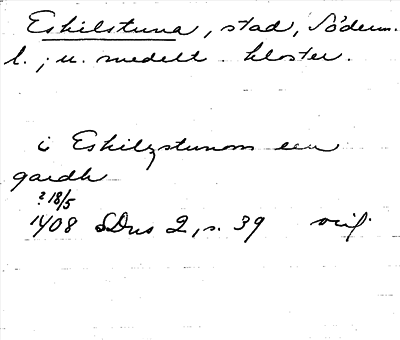 Eskilstuna, stad, Söderm.
l.; u. medelt. kloster.
i Eskilzstunom een
gardh
? 18/5
1408 SDns 2, s. 39 orig.